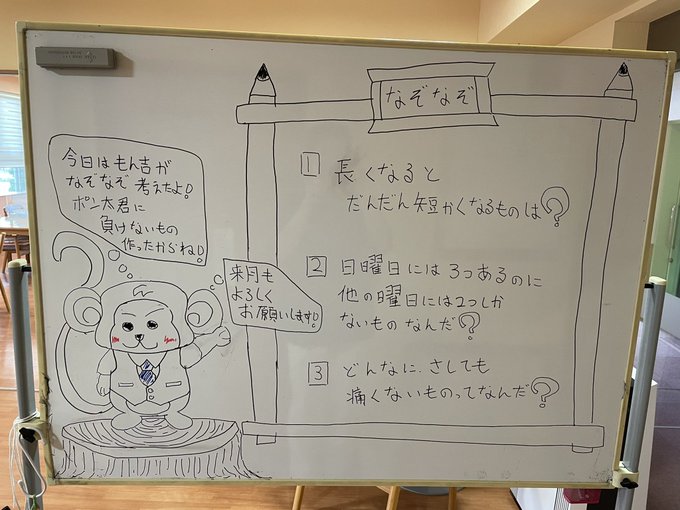 なぞなぞ
今日はもん吉が
なぞなぞ考えたよ!
ポン太君に
負けないもの
作ったからね!
来月も
よろしく
お願いします!
1 長くなると
だんだん短かくなるものは?
2 日曜日には3つあるのに
他の曜日には2つしか
ないものなんだ?
3 どんなに、さしても
痛くないものってなんだ?